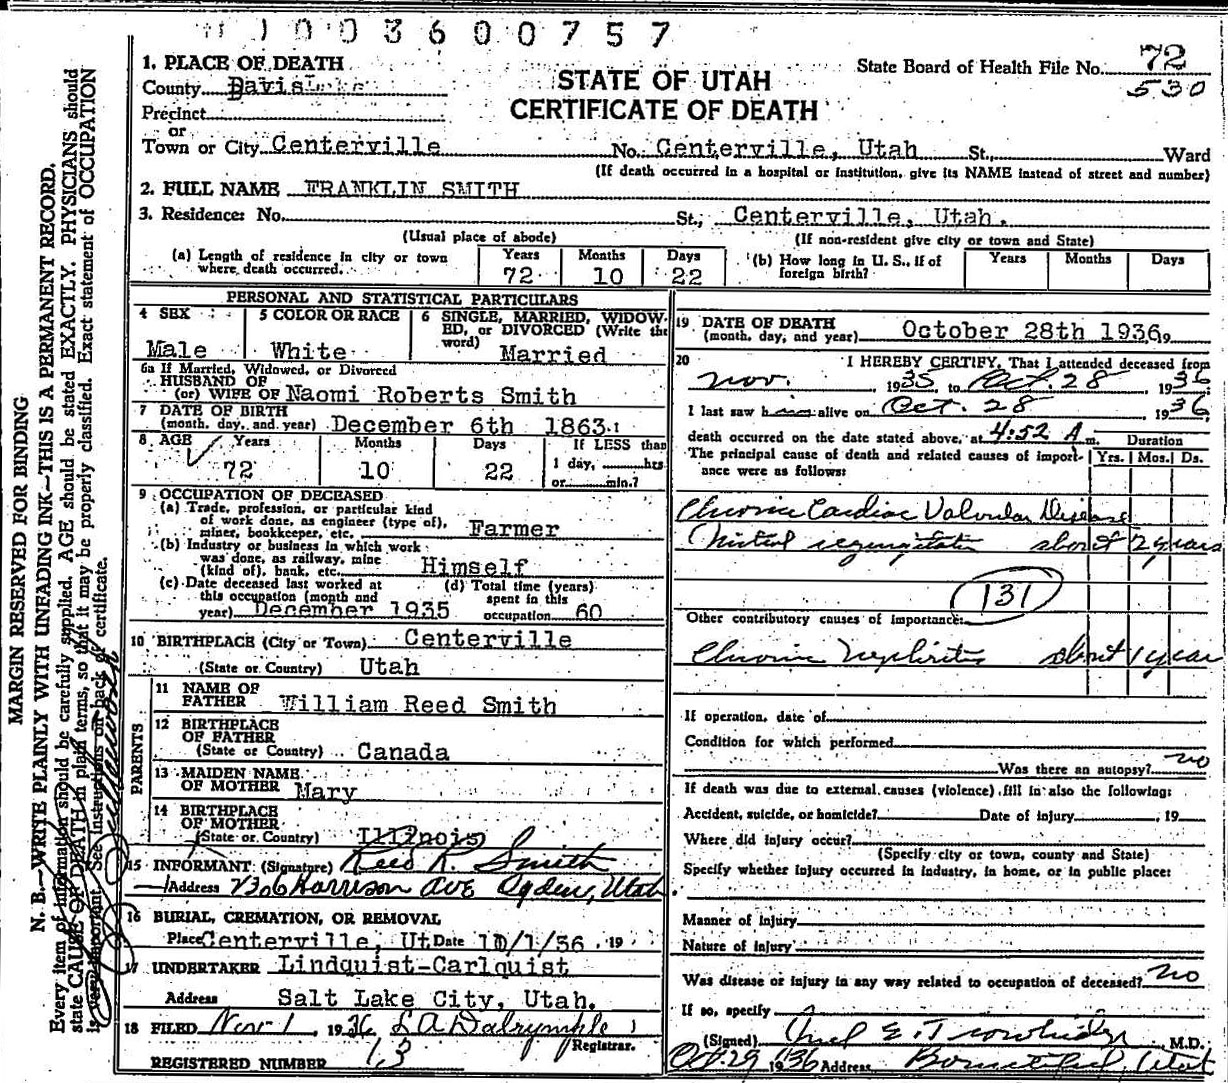 1003600757
1. PLACE OF DEATH
County Davis
Precinct
or
Town or City Centerville
STATE OF UTAH
CERTIFICATE OF DEATH
State Board of Health File No. 72
530
No. Centerville, Utah St., Ward
(If death occurred in a hospital or institution, give its NAME instead of street and number)
2. FULL NAME FRANKLIN SMITH
3. Residence: No. St.; Centerville, Utah.
(Usual place of abode) (If non-resident give city or town and State)
(a) Length of residence in city or town where death occurred. Years 72 Months 10 Days 22
(b) How long in U. S., if of foreign birth? Years Months Days
PERSONAL AND STATISTICAL PARTICULARS
4 SEX Male
5 COLOR OR RACE White
6 SINGLE, MARRIED, WIDOWED, or DIVORCED (Write the word) Married
6a If Married, Widowed, or Divorced
HUSBAND OF
(or) WIFE OF Naomi Roberts Smith
7 DATE OF BIRTH
(month, day, and year) December 6th 1863
8 AGE Years Months Days If LESS than
72 10 22 1 day, hrs
or min.?
9 OCCUPATION OF DECEASED
(a) Trade, profession, or particular kind
of work done, as engineer (type of),
miner, bookkeeper, etc. Farmer
(b) Industry or business in which work
was done, as railway, mine
(kind of), bank, etc. Himself
(c) Date deceased last worked at
this occupation (month and
year) December 1935
(d) Total time (years)
spent in this
occupation 60
10 BIRTHPLACE (City or Town) Centerville
(State or Country) Utah
PARENTS
11 NAME OF
FATHER William Reed Smith
12 BIRTHPLACE
OF FATHER
(State or Country) Canada
13 MAIDEN NAME
OF MOTHER Mary
14 BIRTHPLACE
OF MOTHER
(State or Country) Illinois
15 INFORMANT (Signature) Reed R. Smith
Address 2306 Harrison Ave Ogden, Utah.
16 BURIAL, CREMATION, OR REMOVAL
Place Centerville, Ut. Date /1/36 19
17 UNDERTAKER Lindquist-Carlquist
Address Salt Lake City, Utah.
18 FILED Nov 1, 1936 L A Dalrymple
Registrar.
REGISTERED NUMBER 13
19 DATE OF DEATH
(month, day, and year) October 28th 1936
20 I HEREBY CERTIFY, That I attended deceased from
Nov. 1935 to Oct. 28 1936
I last saw him alive on Oct. 28 1936,
death occurred on the date stated above, at 4:52 A m. Duration
The principal cause of death and related causes of importance were as follows: Yrs. Mos. Ds.
Chronic Cardiac Valvular Disease
Mitral regurgitation about 2 years
131
Other contributory causes of importance:
Chronic Nephritis about 1 year
If operation, date of
Condition for which performed
Was there an autopsy? no
If death was due to external causes (violence) fill in also the following:
Accident, suicide, or homicide? Date of injury , 19
Where did injury occur?
(Specify city or town, county and State)
Specify whether injury occurred in industry, in home, or in public place:
Manner of Injury
Nature of Injury
Was disease or injury in any way related to occupation of deceased? no
If so, specify
(Signed) E. Trowbridge M.D.
Oct 29 1936 Address Bountiful, Utah
MARGIN RESERVED FOR BINDING
N. B.—WRITE PLAINLY WITH UNFADING INK—THIS IS A PERMANENT RECORD.
Every item of information should be carefully supplied. AGE should be stated EXACTLY. PHYSICIANS should
state CAUSE OF DEATH in plain terms, so that it may be properly classified. Exact statement of OCCUPATION
is very important. See Instructions on back of certificate.